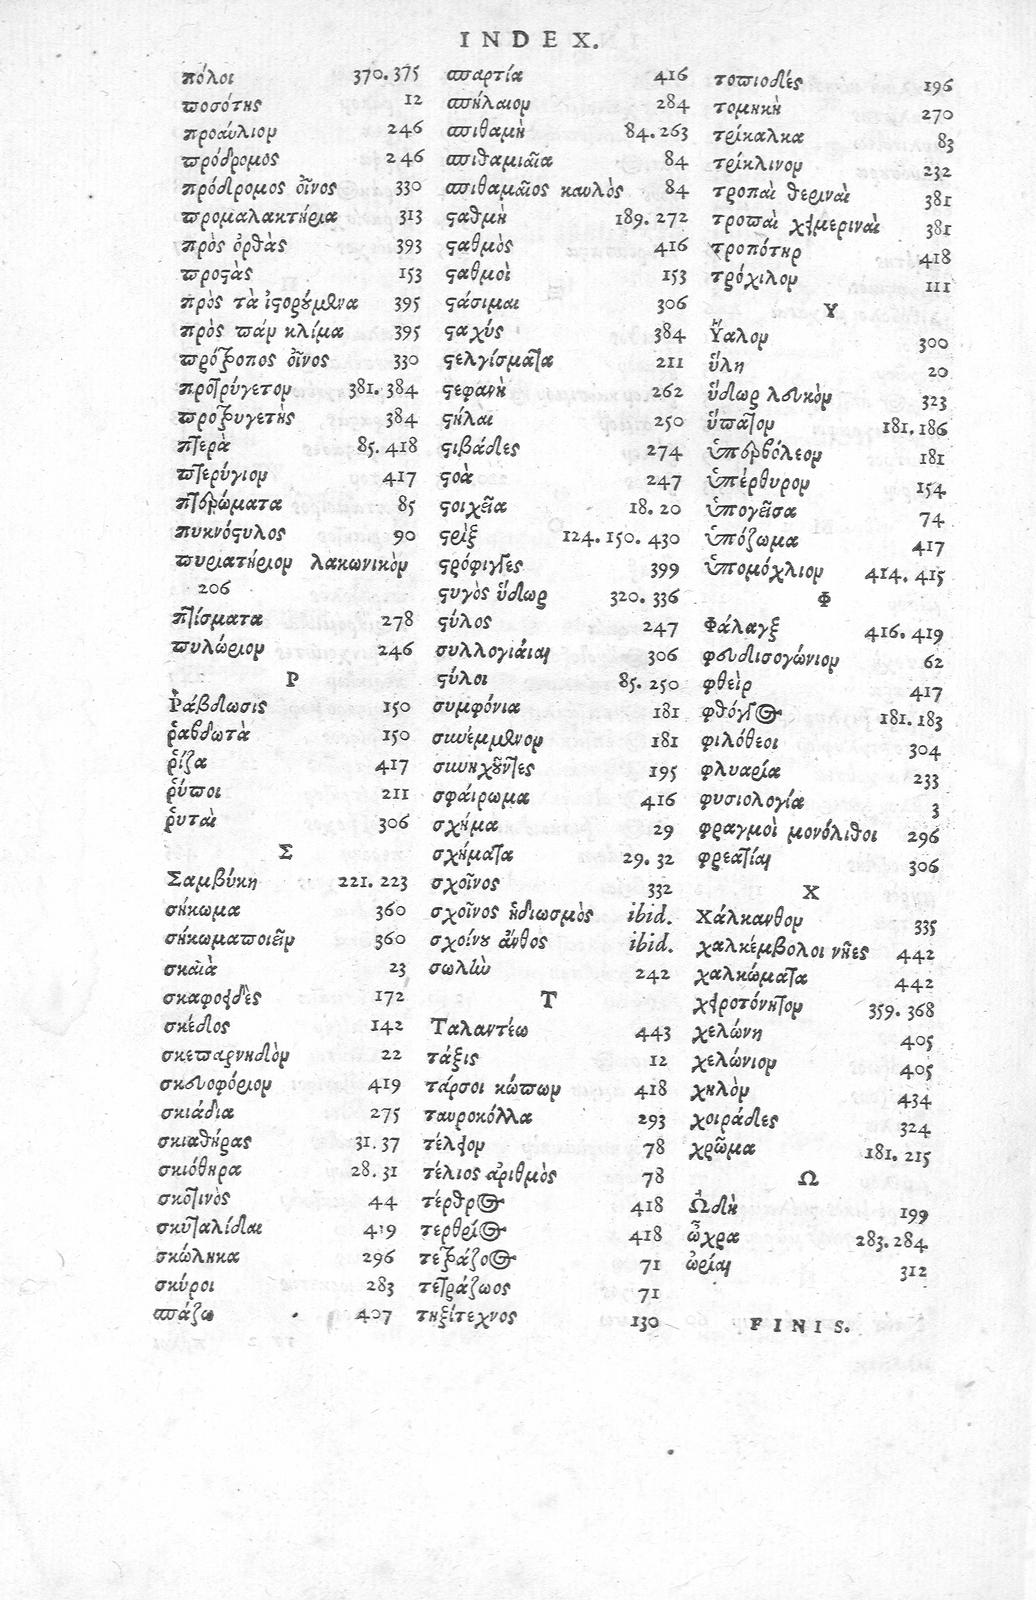 INDEX.
πόλοι 370.375
ποσότης 12
προαύλιον 246
πρόδρομος 246
πρόδρομος οἶνος 330
προμαλακτήρια 313
πρὸς ὀρθὰς 393
προςὰς 153
πρὸς τὰ ἱςορούμενα 395
πρὸς πάν κλίμα 395
πρότροπος οἶνος 330
προτρύγετον 381.384
προτρυγετὴς 384
πτερὰ 85.418
πτερύγιον 417
πτερώματα 85
πυκνόςυλος 90
πυριατήριον λακωνικὸν
206
πτίσματα 278
πυλώριον 246
Ρ
Ῥάβδωσις 150
ῥαβδωτὰ 150
ῥίζα 417
ῥύποι 211
ῥυταὶ 306
Σ
Σαμβύκη 221.223
σήκωμα 360
σήκωματοιεῖν 360
σκαιὰ 23
σκαφοειδὲς 172
σκέδος 142
σκεπαρνηδὸν 22
σκευοφόριον 419
σκιάδια 275
σκιαθήρας 31.37
σκιόθηρα 28.31
σκοτινὸς 44
σκυταλίδαι 419
σκώληκα 296
σκύροι 283
σπάζω 407
σπαρτία 416
σπήλαιον 284
σπιθαμὴ 84.263
σπιθαμιαῖα 84
σπιθαμαῖος καυλὸς 84
ςαθμὴ 189.272
ςαθμὸς 416
ςαθμοὶ 153
ςάσιμαι 306
ςαχύς 384
ςελγίσματα 211
ςεφανὴ 262
ςήλαι 250
ςιβάδες 274
ςοὰ 247
ςοιχεῖα 18.20
ςρὶξ 124.150.430
ςρόφιγγες 399
ςυγὸς ὕδωρ 320.336
ςύλος 247
συλλογιάιαι 306
ςύλοι 85.250
συμφόνια 181
συνέμμενον 181
συνηχοῦντες 195
σφάιρωμα 416
σχήμα 29
σχήματα 29.32
σχοῖνος 332
σχοῖνος ἡδιωσμὸς ibid.
σχοίνου ἄνθος ibid.
σωλὼ 242
Τ
Ταλαντέω 443
τάξις 12
τάρσοι κώπων 418
ταυροκόλλα 293
τέλειον 78
τέλιος ἀριθμὸς 78
τέρθρος 418
τερθρίος 418
τετράζοος 71
τετράζωος 71
τηξίτεχνος 130
τοπιοδὲς 196
τομηκὴ 270
τρίκαλκα 83
τρίκλινον 232
τροπαὶ θεριναὶ 381
τροπαὶ χειμεριναὶ 381
τροπότηρ 418
τρόχιλον 111
Υ
Ὕαλον 300
ὕλη 20
ὕδωρ λευκὸν 323
ὕπατον 181.186
ὑπερβόλεον 181
ὑπέρθυρον 154
ὑπογεῖσα 74
ὑπόζωμα 417
ὑπομόχλιον 414.415
Φ
Φάλαγξ 416.419
φευδισογώνιον 62
φθεὶρ 417
φθόγγος 181.183
φιλόθεοι 304
φλυαρία 233
φυσιολογία 3
φραγμοὶ μονόλιθοι 296
φρεατίαι 306
Χ
Χάλκανθον 335
χαλκέμβολοι νῆες 442
χαλκώματα 442
χειροτόνητον 359.368
χελώνη 405
χελώνιον 405
χηλὸν 434
χοιράδες 324
χρῶμα 181.215
Ω
Ὠδὴ 199
ὦχρα 283.284
ὡρίαι 312
FINIS.